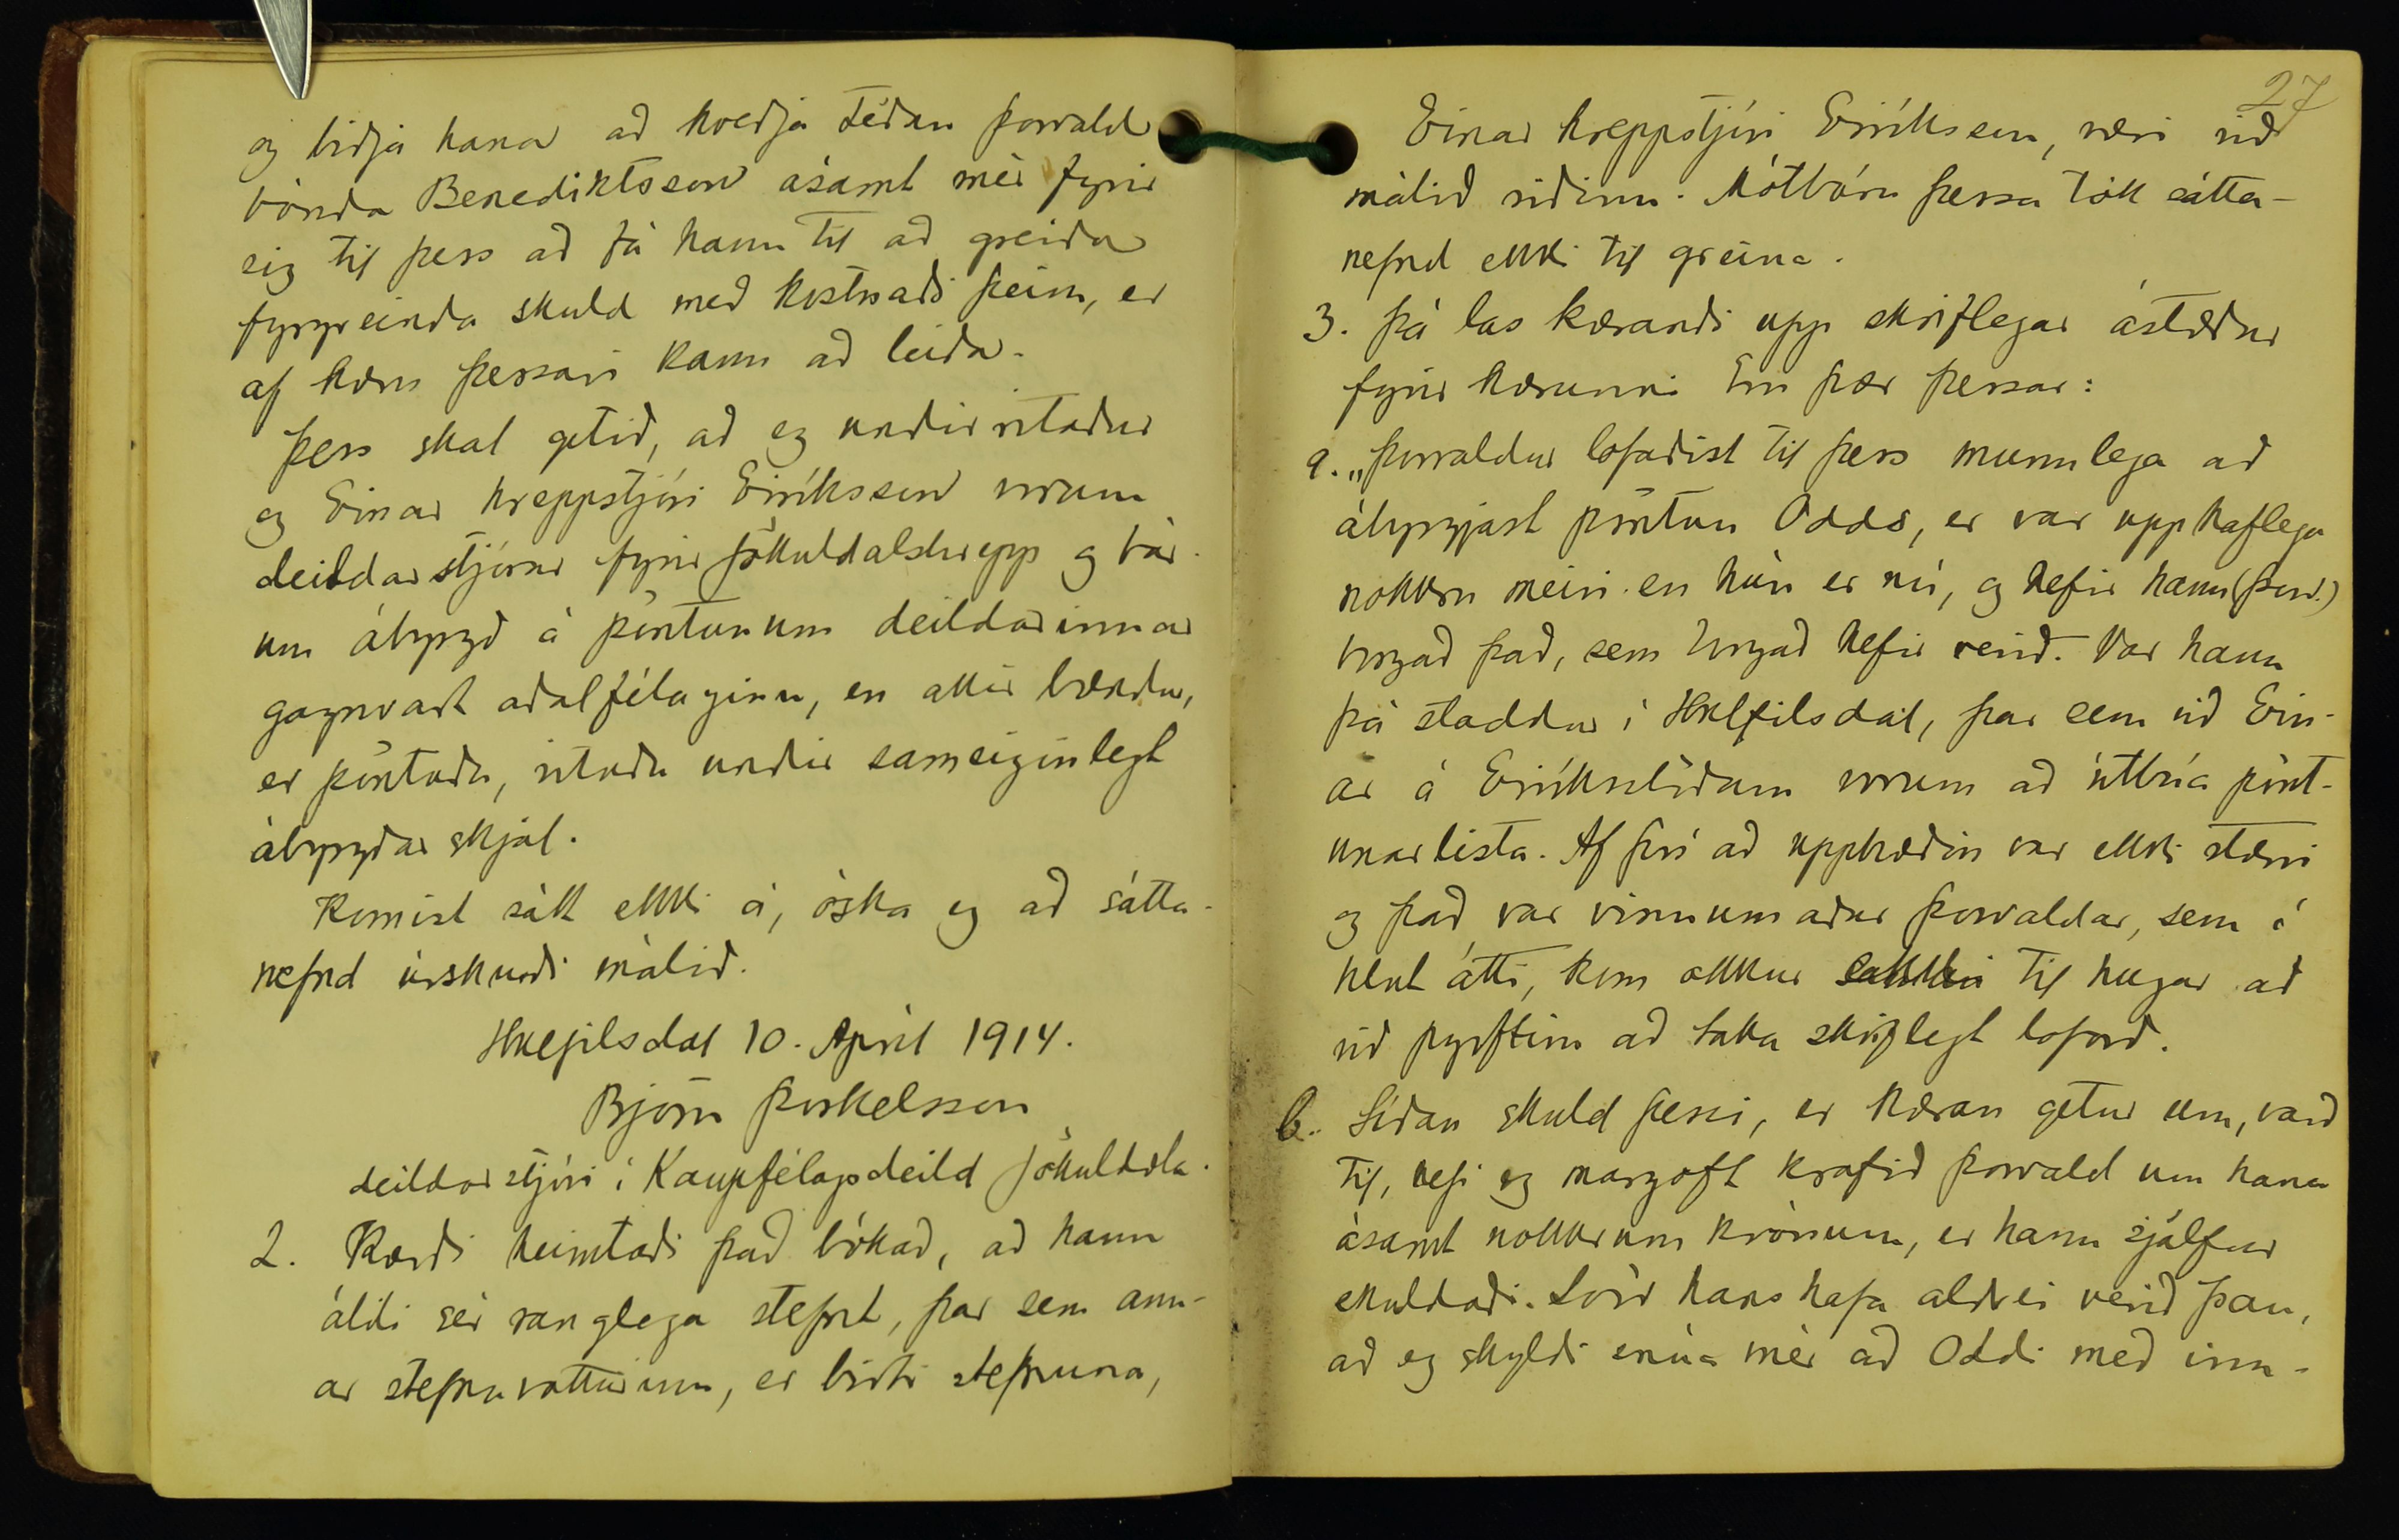 og biðja hana að kveðja téðan Þorvald
bónda Benediktsson ásamt mér fyrir
sig til þess að fá hann til að greiða
fyrgreinda skuld með kostnaði þeim, er
af kæru þessari kann að leiða.
Þess skal getið, að eg undirritaður
og Einar hreppstjóri Eiríksson vorum
deildarstjórar fyrir Jökuldalshrepp og bár-
um ábyrgð á pöntunum deildarinnar
gagnvart aðalfélaginu, en allir bændur,
er pöntuðu, rituðu undir sameiginlegt
ábyrgðarskjal.
Komist sátt ekki á, óska eg að sátta-
nefnd úrskurði málið.
Hnefilsdal 10. Apríl 1914.
Björn Þorkelsson
deildarstjóri í Kaupfélagsdeild Jökuldæla.
2. Kærði heimtaði það bókað, að hann
áliti sér ranglega stefnt, þar sem ann-
ar stefnuvotturinn, er birti stefnuna,
27
Einar hreppstjóri Eiríksson, væri við
málið riðinn. Mótbáru þessa tók sátta-
nefnd ekki til greina.
3. Þá las kærandi upp skriflegar ástæður
fyrir kærunni Eru þær þessar:
a. „Þorvaldur lofaðist til þess munnlega að
ábyrgjast pöntun Odds, er var upphaflega
nokkru meiri en hún er nú, og hefir hann (Þorv.)
borgað það, sem borgað hefir verið. Var hann
þá staddur í Hnefilsdal, þar sem við Ein-
ar á Eiríksstöðum vorum að útbúa pönt-
unarlista. Af því að upphæðin var ekki stærri
og það var vinnumaður Þorvaldar, sem í
hlut átti, kom okkur ekki til hugar að
við þyrftum að taka skriflegt loforð.
b. Síðan skuld þessi, er kæran getur um, varð
til, hefi eg margoft krafið Þorvald um hana
ásamt nokkrum krónum, er hann sjálfur
skuldaði. Svör hans hafa aldrei verið þau,
að eg skyldi snúa mér að Oddi með inn-